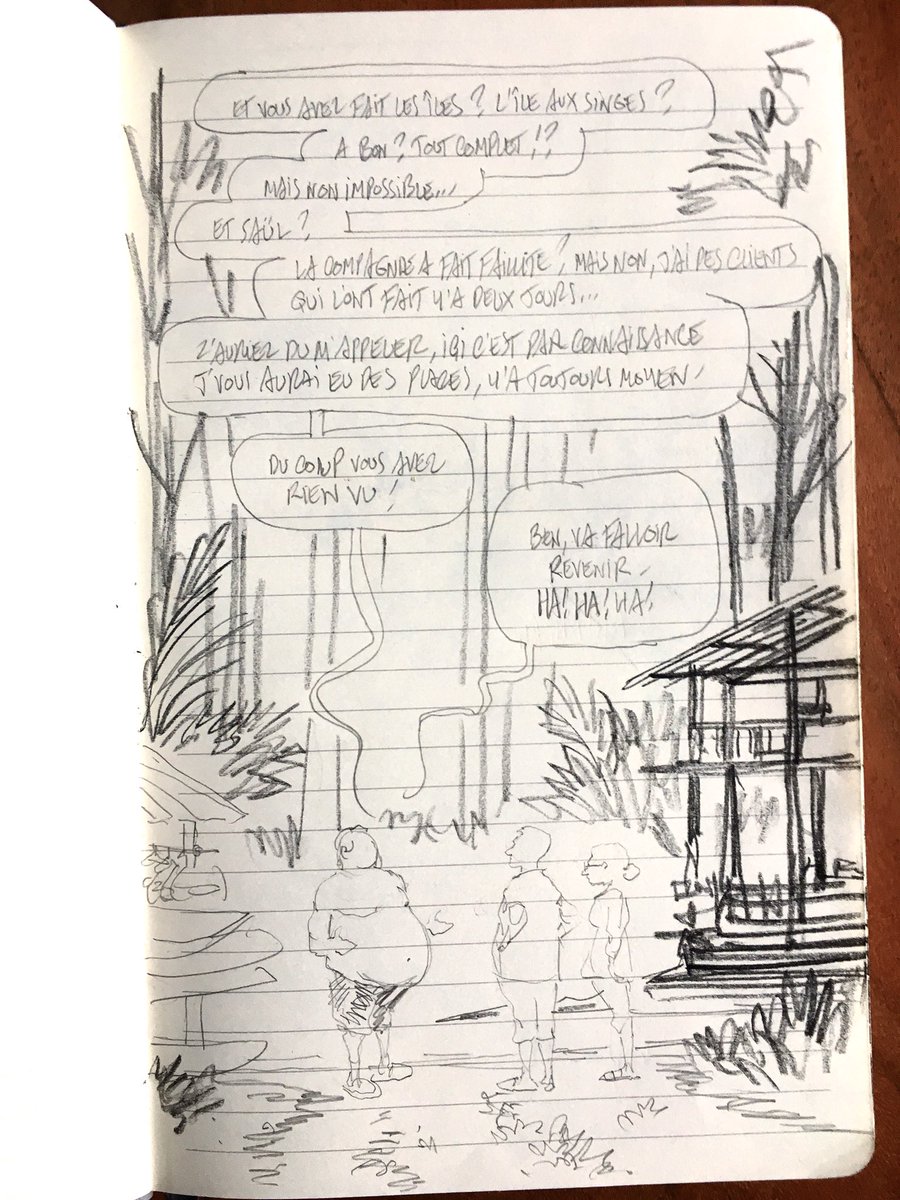 ET VOUS AVEZ FAIT LES ÎLES ? L'ÎLE AUX SINGES ?
A BON ? TOUT COMPLET !?
MAIS NON IMPOSSIBLE...
ET SAÜL ?
LA COMPAGNIE A FAIT FAILLITE ? MAIS NON, J'AI DES CLIENTS
QUI L'ONT FAIT Y'A DEUX JOURS...
Z'AURIEZ DU M'APPELER, ICI C'EST PAR CONNAISSANCE
J'VOUS AURAI EU DES PLACES, Y'A TOUJOURS MOYEN !
DU COUP VOUS AVEZ
RIEN VU !
BEN, VA FALLOIR
REVENIR
HA! HA! HA!